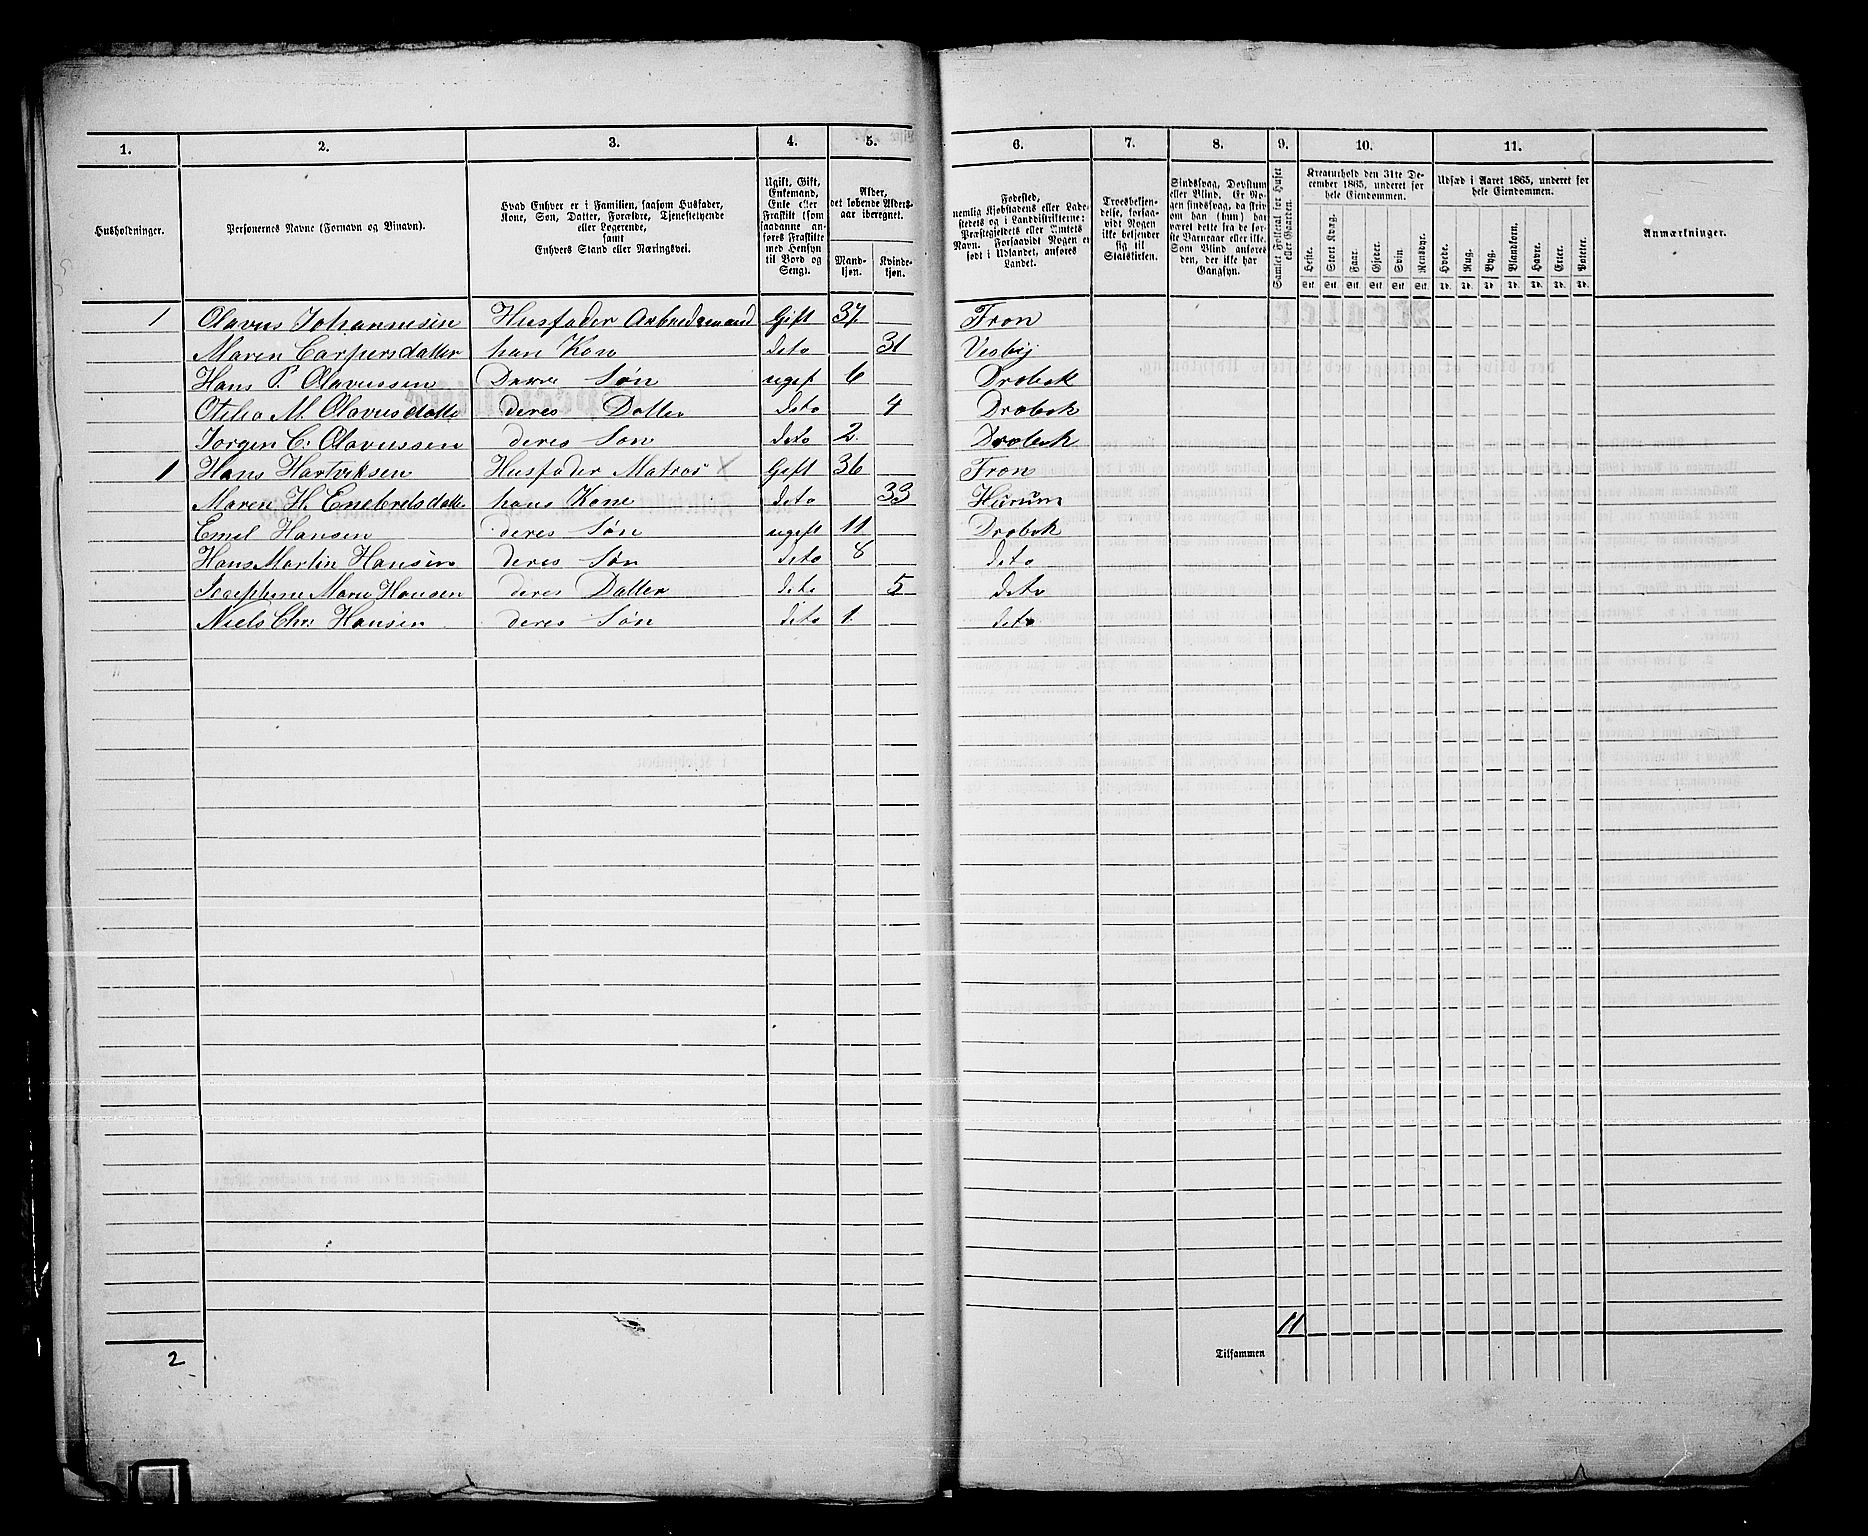 1. 2. 3. 4. 5. 6. 7. 8. 9. 10. 11.
Husholdninger.
Personernes Navne (Fornavn og Tilnavn).
Hvad Enhver er i Familien, saasom Husfader, Kone, Søn, Datter, Forældre, Tjenestetyende eller Logerende, samt Enhvers Stand eller Næringsvei.
Ugift, Gift, Enkemand, Enke eller Fraskilt (som saadanne anføres Fraskilte med Hensyn til Bord og Seng).
Alder, det løbende Alders-aar iberegnet.
Mand-kjøn. Kvinde-kjøn.
Fødested, nemlig Kjøbstadens eller Ladestedets og i Landdistrikterne: Præstegjeldets eller Amtets Navn. Forsaavidt Nogen er født i Udlandet, anføres Landet.
Troesbekjendelse, forsaavidt Nogen ikke bekjender sig til Statskirken.
Sindssvag, Døvstum eller Blind. Er Nogen sindssvag, da skrives om han (hun) har været dette fra de første Barneaar eller ikke. Som Blind anføres den, der ikke har Gangsyn.
Samlet Folketal for Huset eller Gaarden.
Kreaturhold den 31te December 1865, underet for hele Eiendommen.
Heste. Stort Kvæg. Faar. Gjeter. Svin. Rensdyr.
Udsæd i Aaret 1865, underet for hele Eiendommen.
Hvede. Rug. Byg. Blandkorn. Havre. Erter. Poteter.
Anmærkninger.
Stk. Stk. Stk. Stk. Stk. Stk. Td. Td. Td. Td. Td. Td. Td.
1 Olavus Johannesen Husfader Arbeidsmand Gift 37 Fron
Maren Carpersdatter han Kone deto 31 Vesby
Hans P. Olavussen Deres Søn ugift 6 Drøbak
Otelia M. Olavusdatte deres Datter deto 4 Drøbak
Jørgen C. Olavussen deres Søn deto 2 Drøbak
1 Hans Hartviksen Husfader Matros X Gift 36 Fron
Maren H. Enebretsdatte hans Kone deto 33 Hurum
Emel Hansen deres Søn ugift 11 Drøbak
Hans Martin Hansen deres Søn deto 8 deto
Josephine Marie Hansen deres Datter deto 5 deto
Niels Chr: Hansen deres Søn deto 1 deto
11
2 Tilsammen